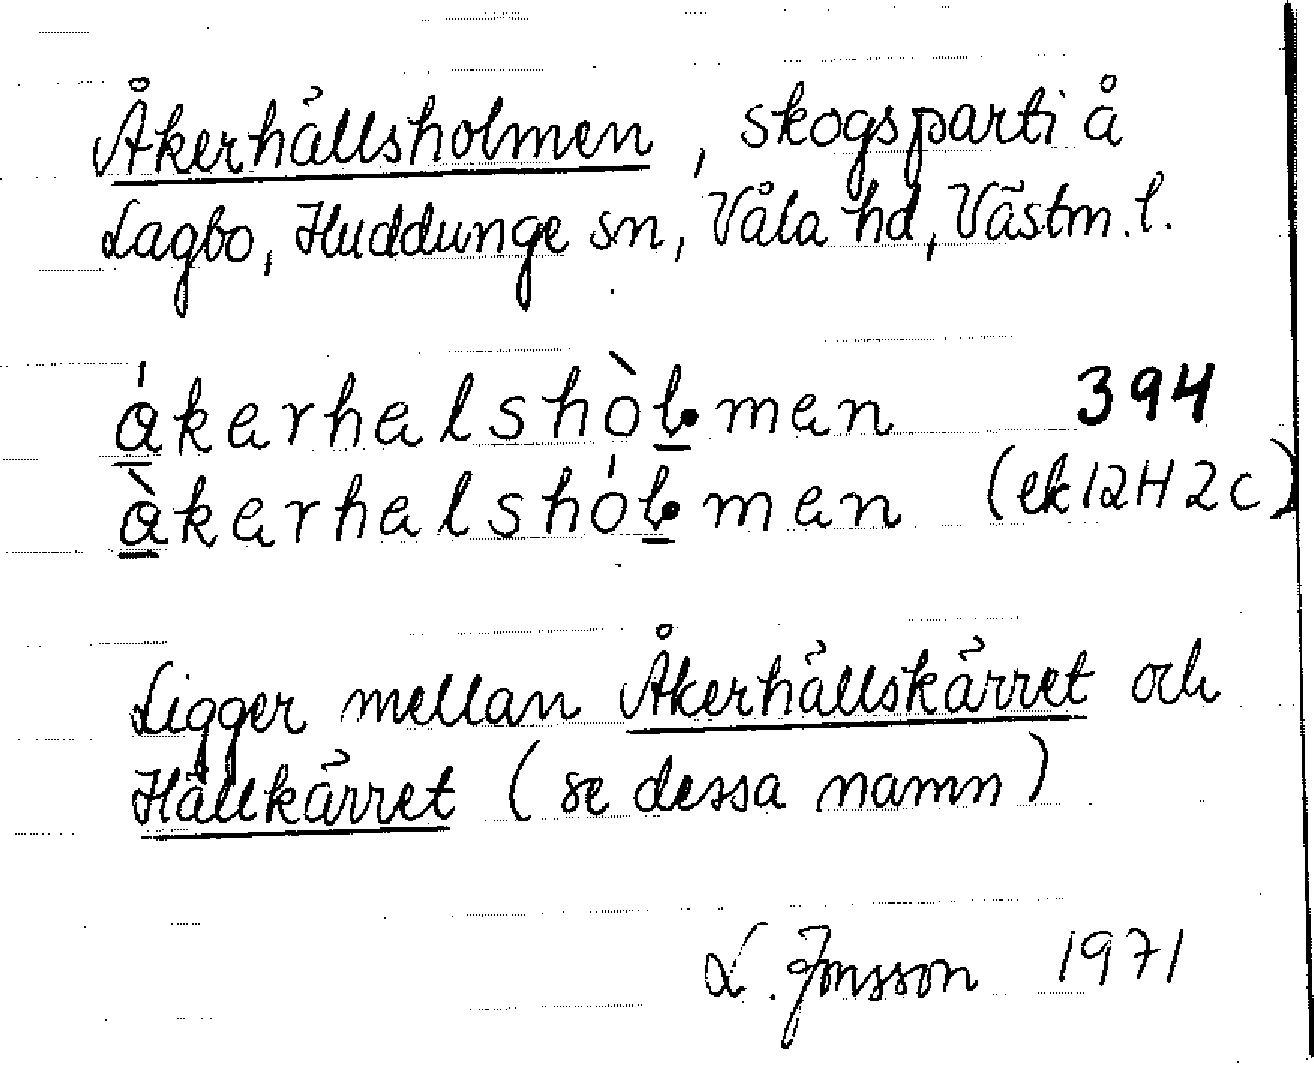 Åkerhällsholmen, skogsparti å
Lagbo, Huddunge sn, Våla hd, Västm.l.
ákerhelshòlmen 394
àkerhelshólmen (ek 12H 2c)
Ligger mellan Åkerhällskärret och
Hällkärret (se dessa namn)
L. Jonsson 1971